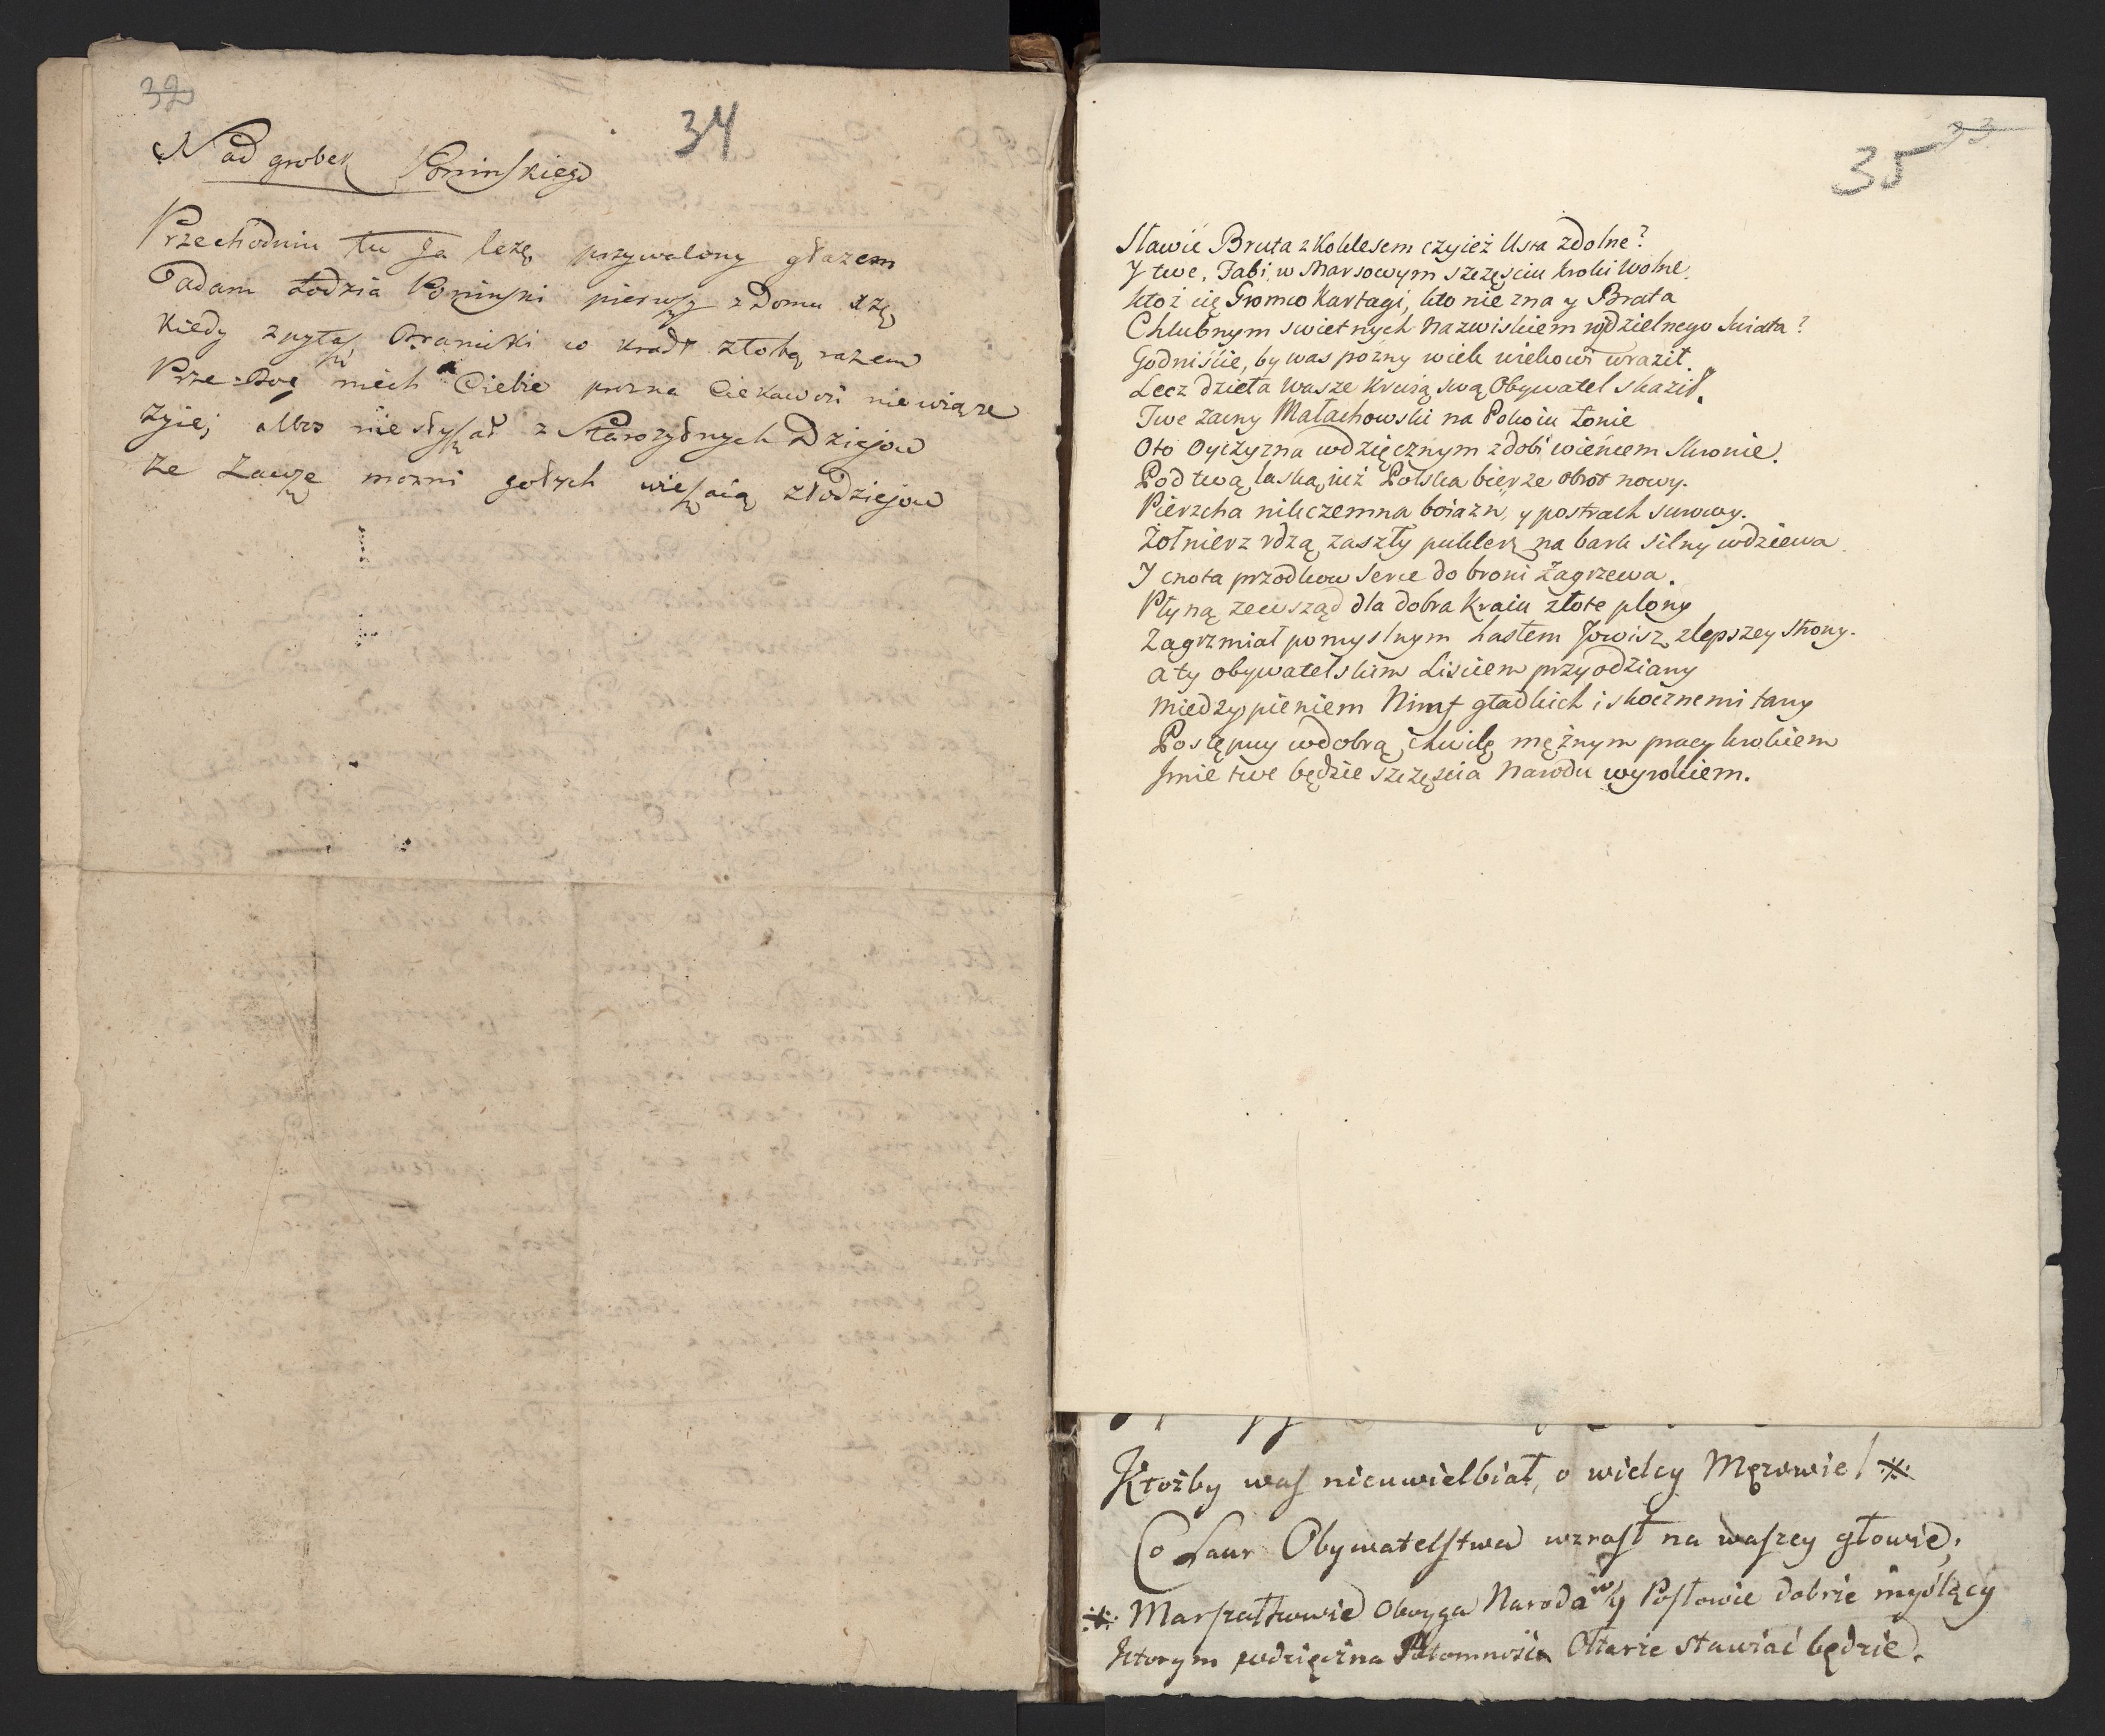 32
34
Nadgrobek Poninskiego
Przechodniu tu Ja leżę przywalony głazem
Adam Łodzia Poninski pierwszy z Domu Xżę
Kiedy zpytasz Branicki co kradł ztobą razem
Prze-Bog niech Ciebie prozna Ciekawość niewiąże
Żyie; Mbo nie słyszał z Starożytnych Dziejow
Że Zawsze możni gołych wieszaią złodziejow
33
35
Sławić Bruta z Koklesem czyież Usta zdolne?
Y twe, Fabi w Marsowym szczęściu kroki Wolne.
ktoż cię Gromco Kartagi, kto nie zna y Brata
Chlubnym swietnych nazwiskiem rozdzielnego Swiata?
Godniście, by was pożny wiek wiekowi wraził.
Lecz dzieła Wasze Krwią swą Obywatel skaził.
Twe zacny Małachowski na Pokoiu łonie
Oto Oyczyzna wdzięcznym zdobi wieńcem Skronie.
Pod twą laską iuż Polska bierze obrot nowy.
Pierzcha nikczemna boiaźń, y postrach surowy.
Żołnierz rdzą zaszły puklerz na bark silny wdziewa
Y cnota przodkow serce do broni Zagrzewa.
Płyną zewsząd dla dobra Kraiu złote plony
Zagrzmiał pomyslnym hasłem Jowisz zlepszey strony.
a ty obywatelskim Liściem przyodziany
między pieniem Nimf gładkich i skocznemi tany
Postępuy wdobrą chwilę mężnym pracy krokiem
Imie twe będzie szczęścia Narodu wyrokiem.
Ktożby was nieuwielbiał, o wielcy Mężowie! *
Co Laur Obywatelstwa wzrasł na waszey głowie;
* Marszałkowie Oboyga Narodow y Posłowie dobrze myślący
ktorym wdzięczna Potomność Ołtarze stawiać będzie.